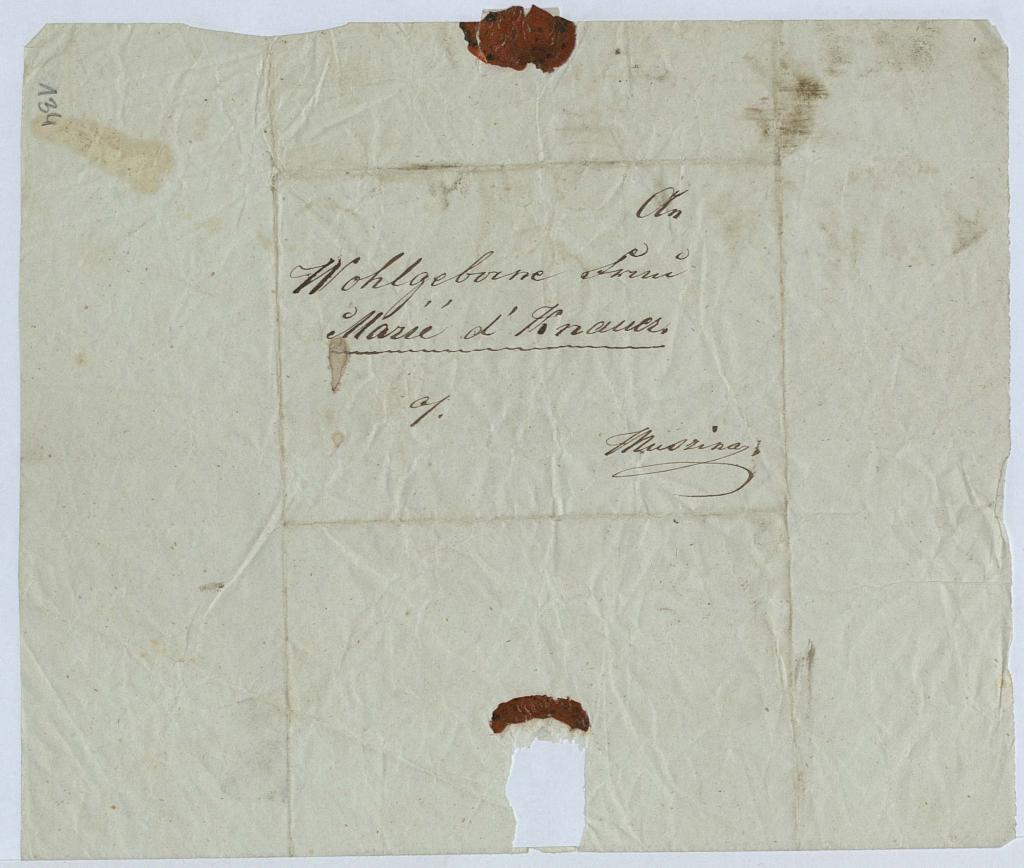 134
An
Wohlgeborne Frau
Marié d' Knauer.
a/.